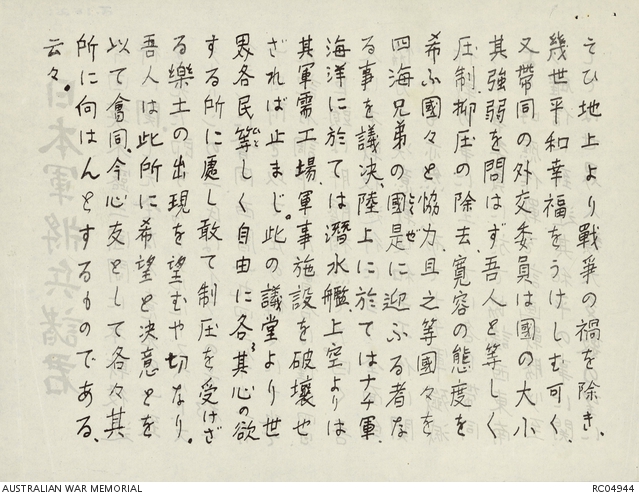 そひ地上より戰爭の禍を除き、
幾世平和幸福をうけしむ可く、
又帶同の外交委員は國の大小
其強弱を問はず吾人と等しく
圧制抑圧の除去、寛容の態度を
希ふ國々と協力且之等國々を
四海兄弟の國是に迎ふる者な
る事を議決、陸上に於てはナチ軍、
海洋に於ては潛水艦上空よりは
其軍需工場、軍事施設を破壞せ
ざれば止まじ。此の議堂より世
界各民等しく自由に各其心の欲
する所に處し敢て制圧を受けざ
る樂土の出現を望むや切なり。
吾人は此所に希望と決意とを
以て會同、今心友として各々其
所に向はんとするものである、
云々。
日本軍將兵諸君
AUSTRALIAN WAR MEMORIAL
RC04944